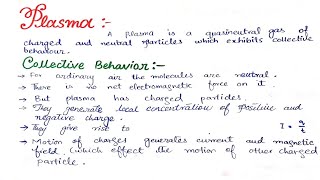 Plasma :-
A plasma is a quasineutral gas of
charged and neutral particles which exhibits collective
behaviour.
Collective Behavior:-
→ For ordinary air the molecules are neutral.
→ There is no net electromagnetic force on it
→ But plasma has charged particles.
→ They generate local concentration of positive and
negative charge.
→ They give rise to I = q/t
→ Motion of charges generates current and magnetic
field (which effect the motion of other charged
particle.